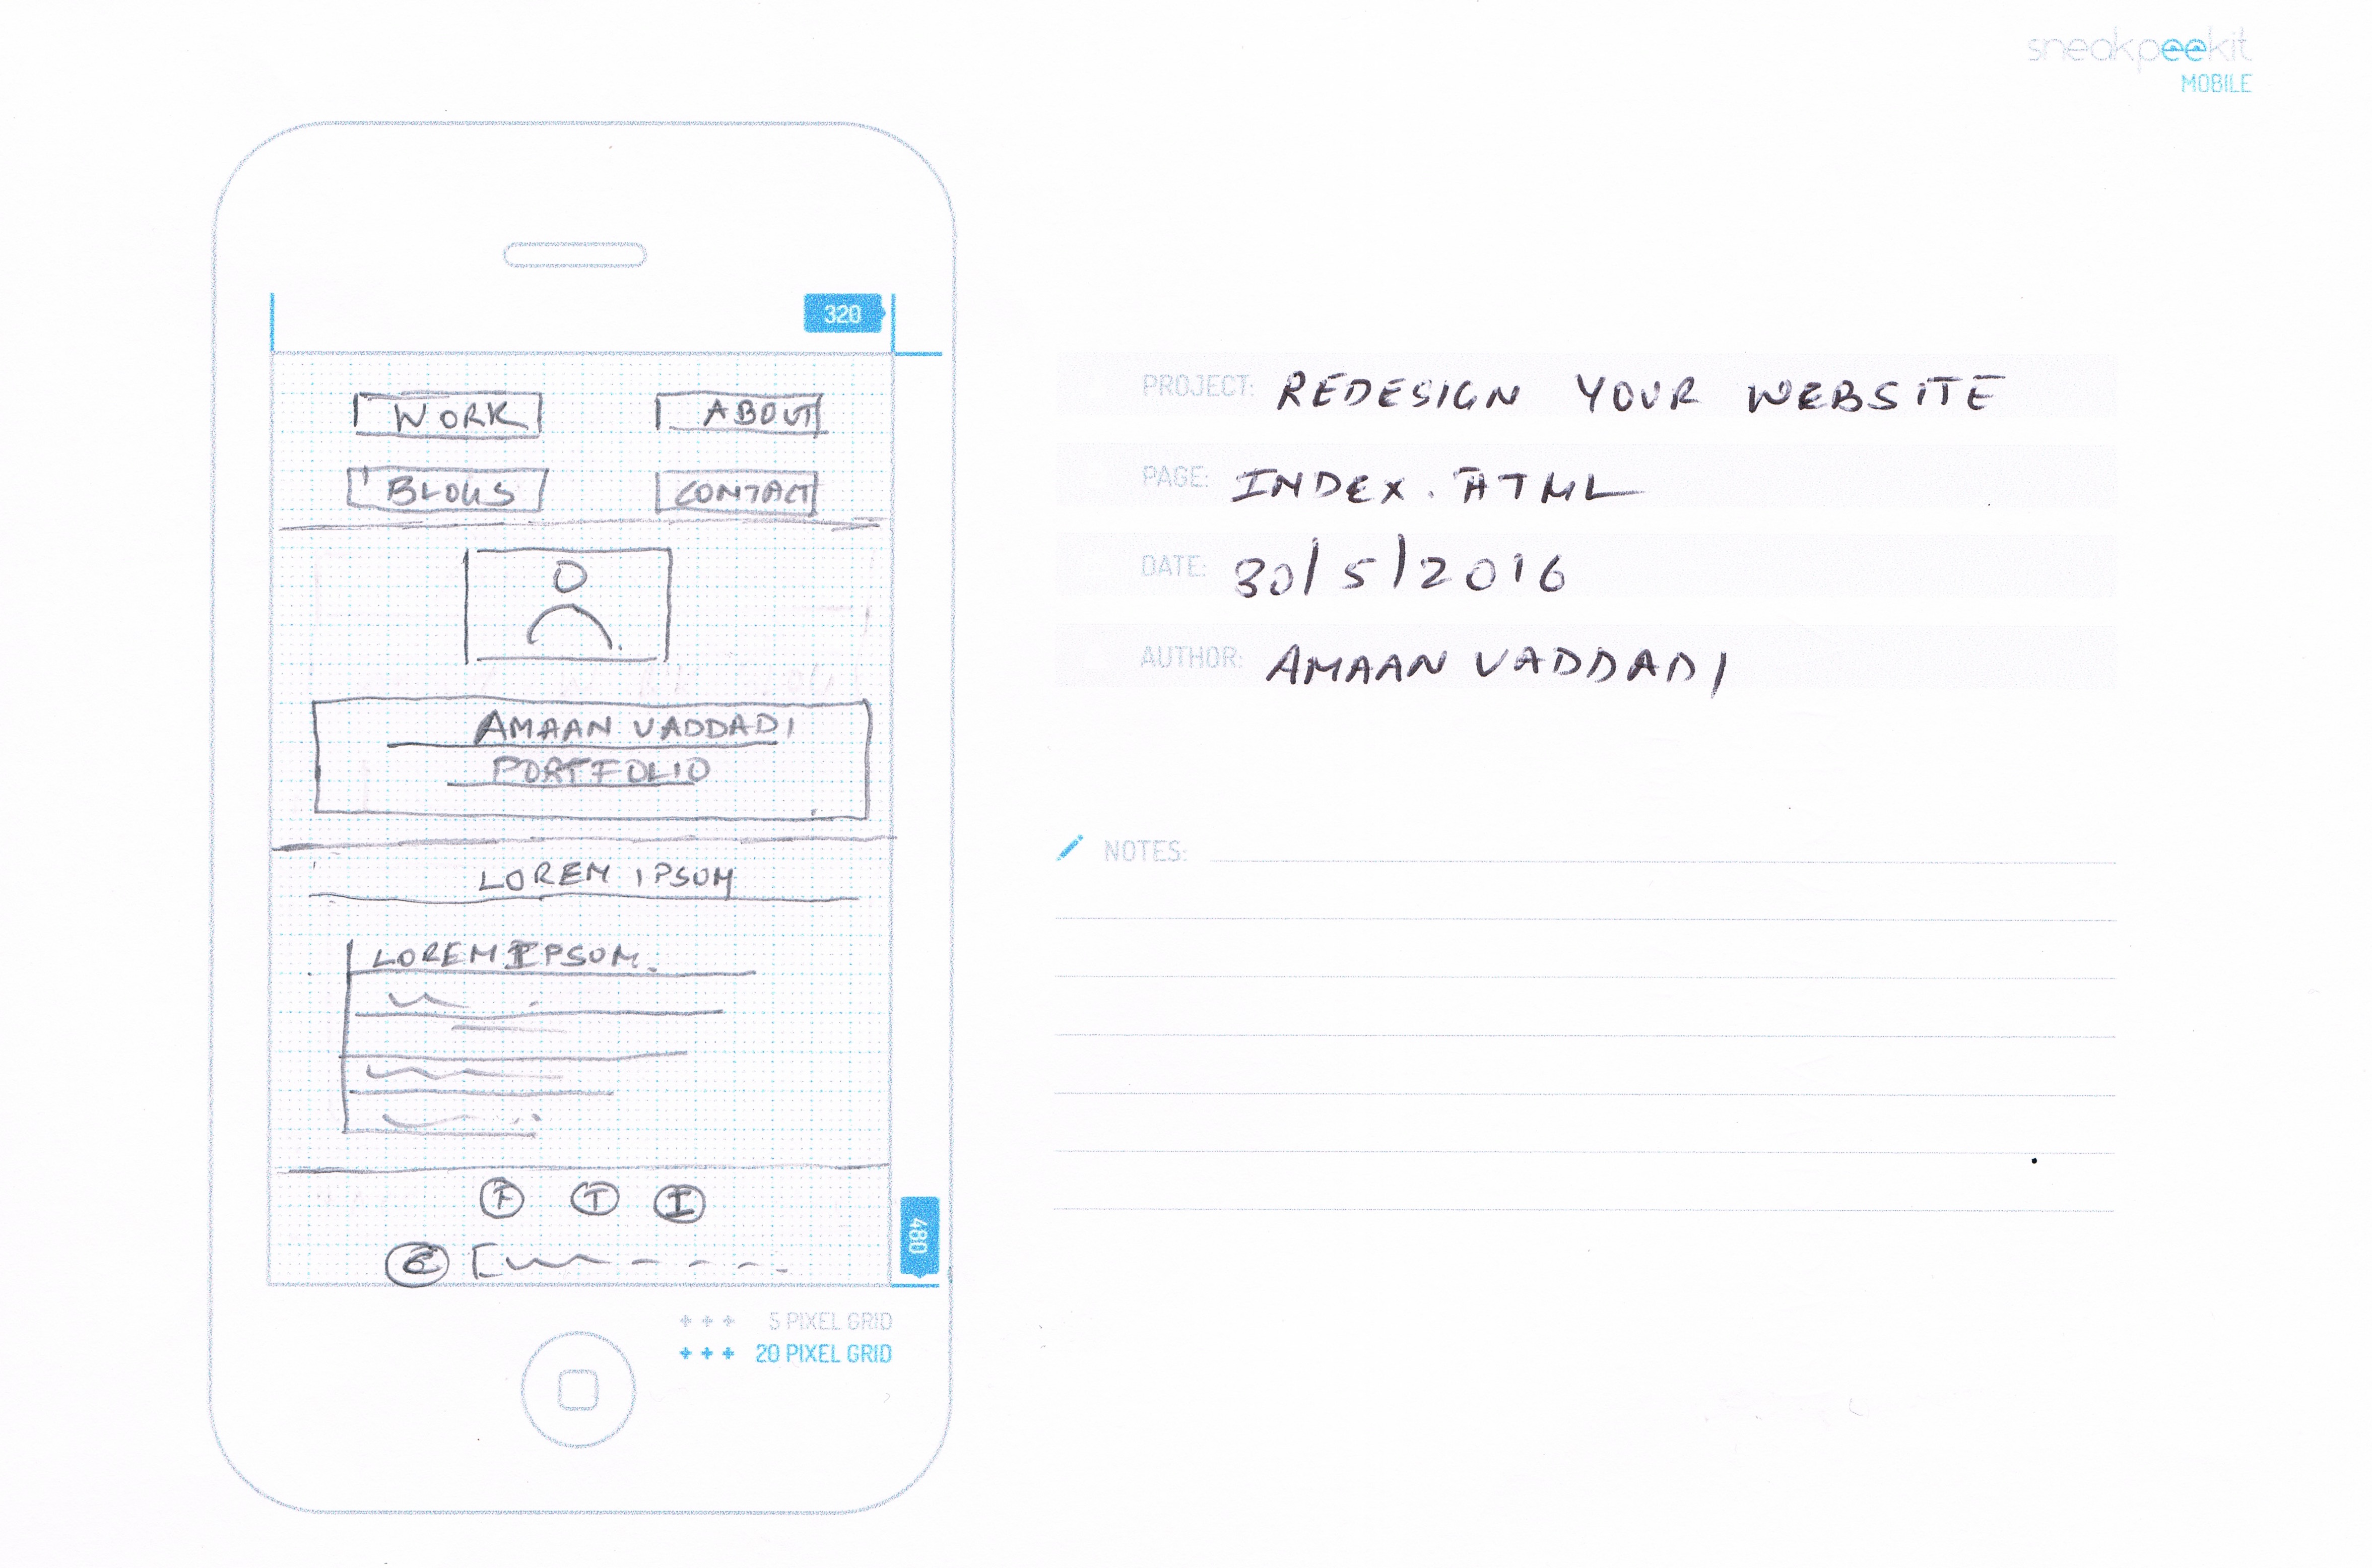 sneakpeekit
MOBILE
320
WORK
ABOUT
BLOGS
CONTACT
AMAAN VADDADI
PORTFOLIO
LOREM IPSUM
LOREM IPSUM.
F T I
480
+++ 5 PIXEL GRID
+++ 20 PIXEL GRID
PROJECT: REDESIGN YOUR WEBSITE
PAGE: INDEX.HTML
DATE: 30/5/2016
AUTHOR: AMAAN VADDADI
NOTES: